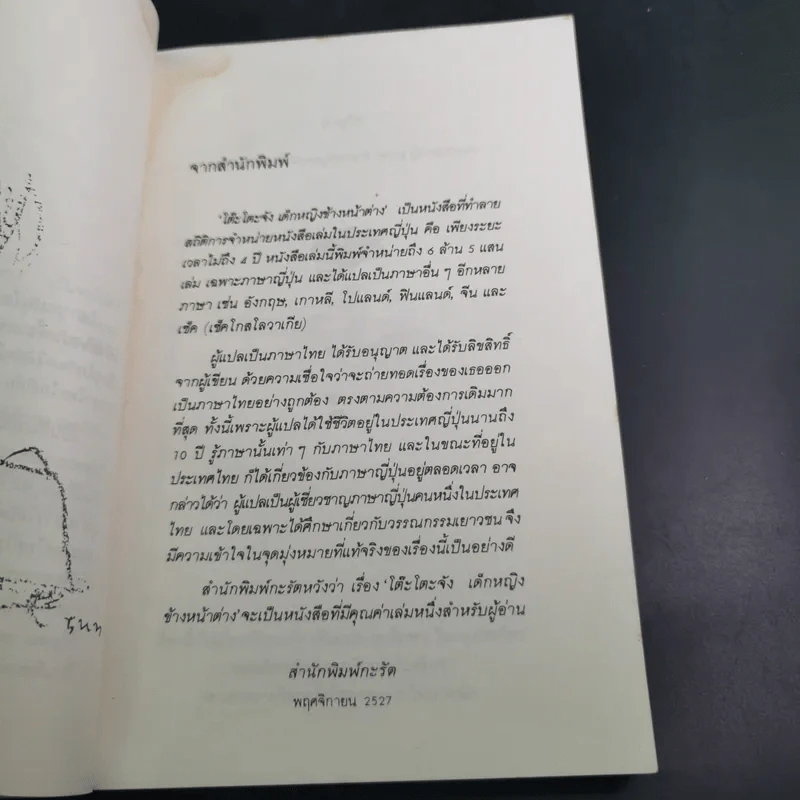 จากสำนักพิมพ์
'โต๊ะโตะจัง เด็กหญิงข้างหน้าต่าง' เป็นหนังสือที่ทำลาย
สถิติการจำหน่ายหนังสือเล่มในประเทศญี่ปุ่น คือ เพียงระยะ
เวลาไม่ถึง 4 ปี หนังสือเล่มนี้พิมพ์จำหน่ายถึง 6 ล้าน 5 แสน
เล่ม เฉพาะภาษาญี่ปุ่น และได้แปลเป็นภาษาอื่น ๆ อีกหลาย
ภาษา เช่น อังกฤษ, เกาหลี, โปแลนด์, ฟินแลนด์, จีน และ
เช็ค (เช็คโกสโลวาเกีย)
ผู้แปลเป็นภาษาไทย ได้รับอนุญาต และได้รับลิขสิทธิ์
จากผู้เขียน ด้วยความเชื่อใจว่าจะถ่ายทอดเรื่องของเธอออก
เป็นภาษาไทยอย่างถูกต้อง ตรงตามความต้องการเดิมมาก
ที่สุด ทั้งนี้เพราะผู้แปลได้ใช้ชีวิตอยู่ในประเทศญี่ปุ่นนานถึง
10 ปี รู้ภาษานั้นเท่า ๆ กับภาษาไทย และในขณะที่อยู่ใน
ประเทศไทย ก็ได้เกี่ยวข้องกับภาษาญี่ปุ่นอยู่ตลอดเวลา อาจ
กล่าวได้ว่า ผู้แปลเป็นผู้เชี่ยวชาญภาษาญี่ปุ่นคนหนึ่งในประเทศ
ไทย และโดยเฉพาะได้ศึกษาเกี่ยวกับวรรณกรรมเยาวชน จึง
มีความเข้าใจในจุดมุ่งหมายที่แท้จริงของเรื่องนี้เป็นอย่างดี
สำนักพิมพ์กะรัตหวังว่า เรื่อง 'โต๊ะโตะจัง เด็กหญิง
ข้างหน้าต่าง' จะเป็นหนังสือที่มีคุณค่าเล่มหนึ่งสำหรับผู้อ่าน
สำนักพิมพ์กะรัต
พฤศจิกายน 2527